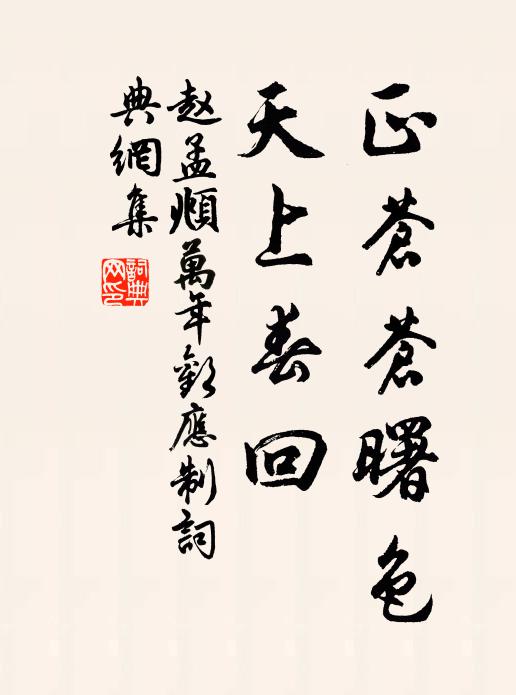 正蒼蒼曙色
天上春回
趙孟頫萬年歡應制詞
典網集
詞典
网印